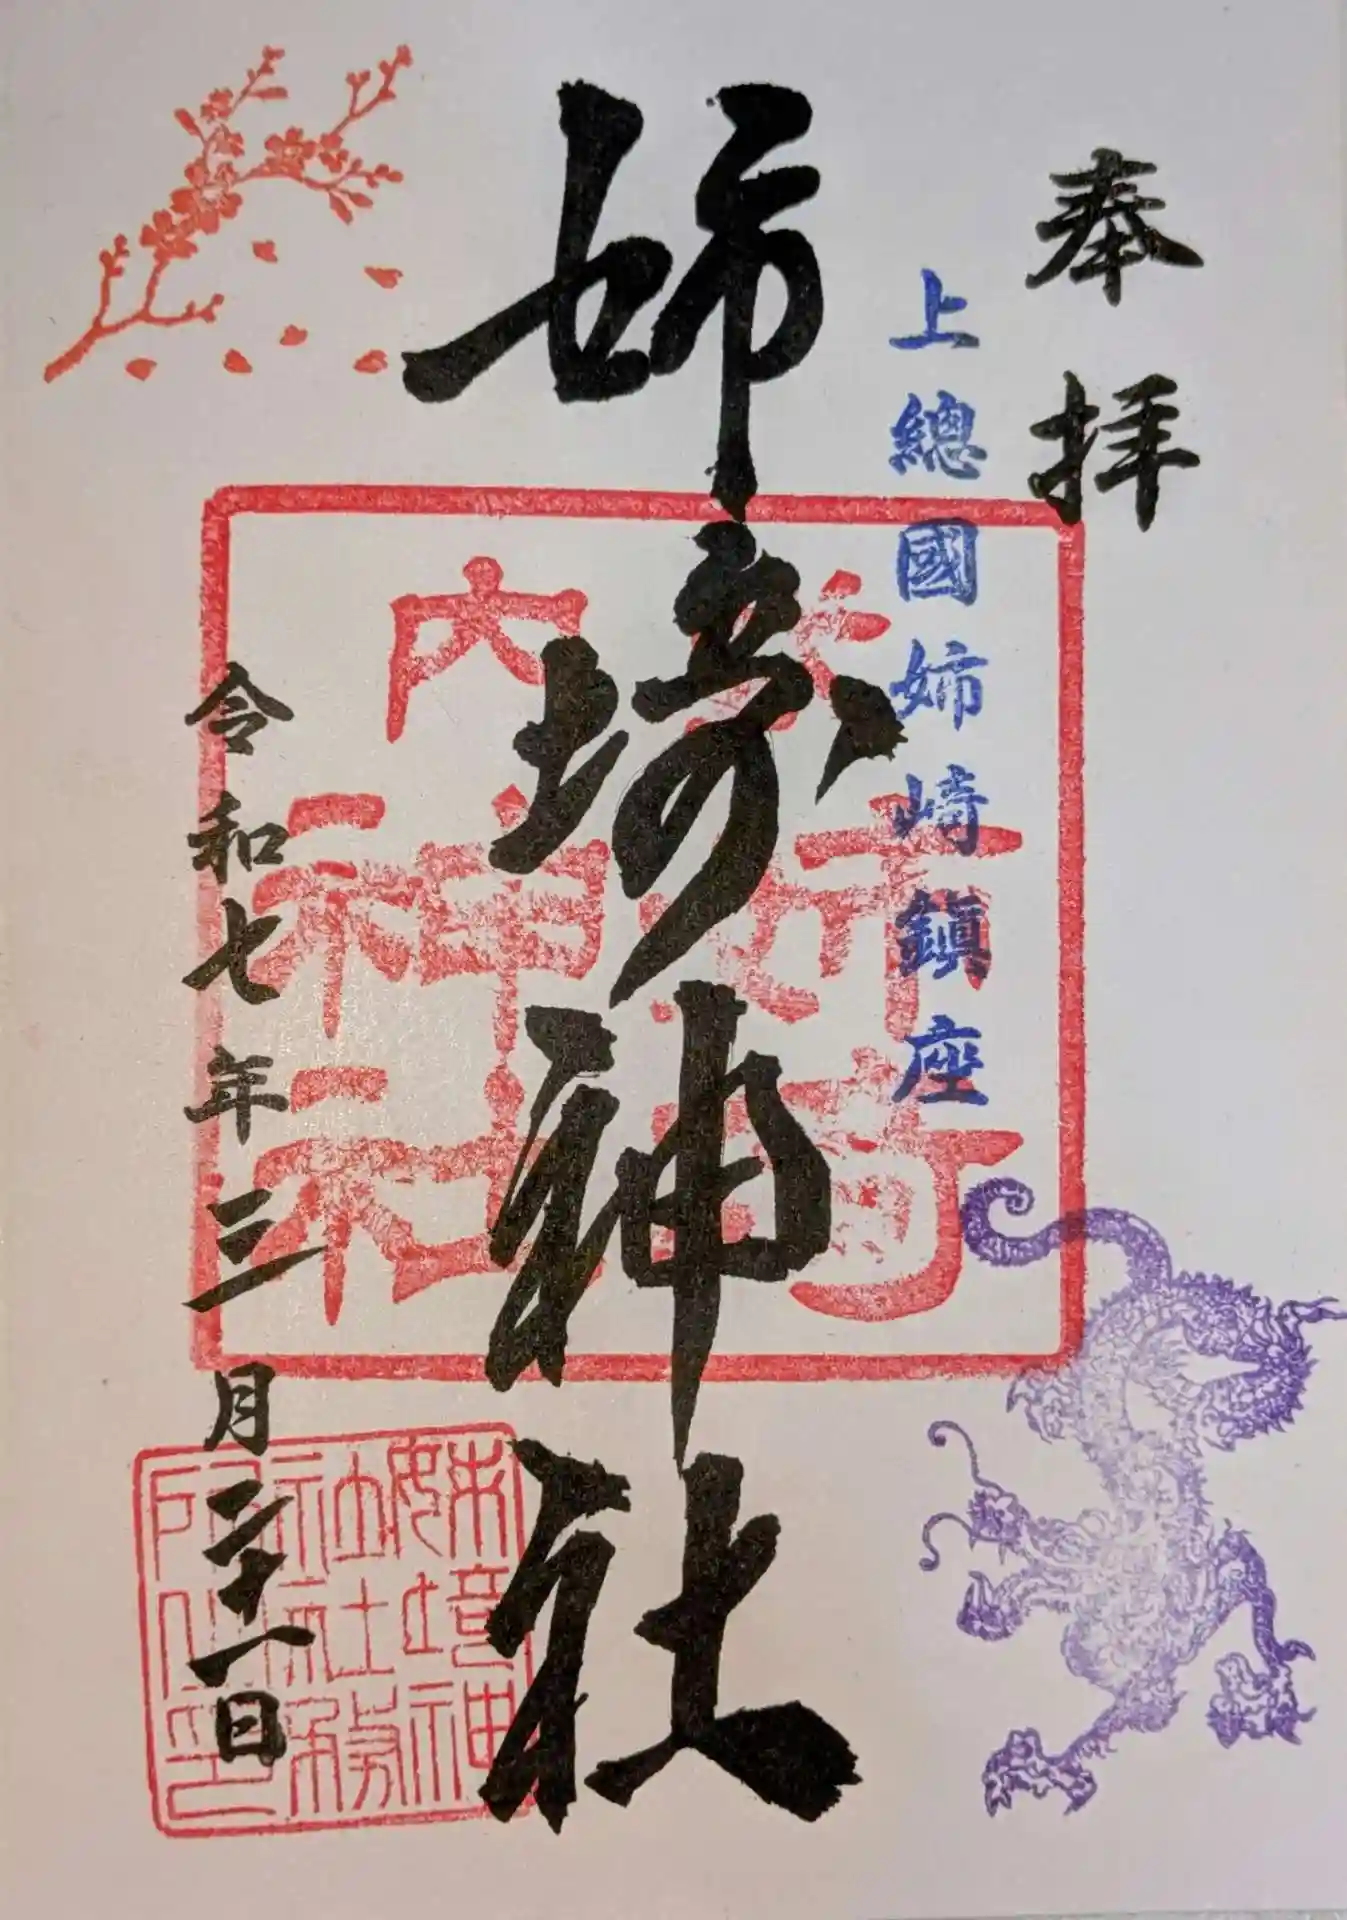 奉拝
上總國姉崎鎮座
姉埼神社
令和七年三月二十一日
式内
神社
姉埼神
社社務
所之印